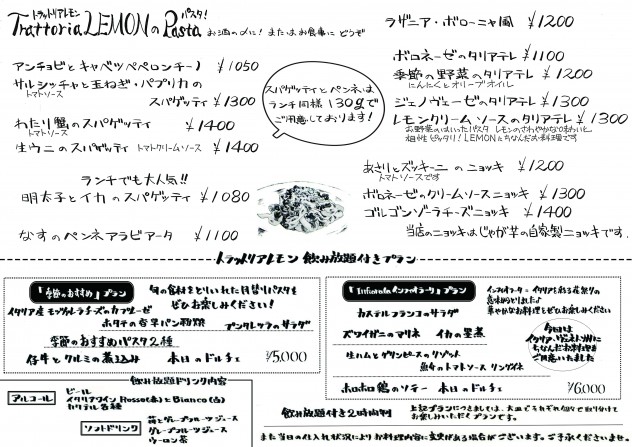 トラットリアレモン パスタ!
Trattoria LEMONの Pasta お酒の〆に! またはお食事に どうぞ
アンチョビとキャベツペペロンチーノ ¥1050
サルシッチャと玉ねぎ・パプリカの
トマトソース スパゲッティ ¥1300
わたり蟹のスパゲッティ ¥1400
トマトソース
生ウニのスパゲッティ トマトクリームソース ¥1400
ランチでも大人気!!
明太子とイカのスパゲッティ ¥1080
なすのペンネアラビアータ ¥1100
スパゲッティとペンネは
ランチ同様130gで
ご用意しております!
ラザニア・ボローニャ風 ¥1200
ボロネーゼのタリアテレ ¥1100
季節の野菜のタリアテレ ¥1200
にんにくとオリーブオイル
ジェノヴェーゼのタリアテレ ¥1300
レモンクリームソースのタリアテレ ¥1300
お野菜のはいったパスタ レモンのさわやかな味わいと
相性ピッタリ! LEMONにちなんだお料理です
あさりとズッキーニのニョッキ ¥1200
トマトソースです
ボロネーゼのクリームソースニョッキ ¥1300
ゴルゴンゾーラチーズニョッキ ¥1400
当店のニョッキはじゃが芋の自家製ニョッキです。
トラットリアレモン 飲み放題付きプラン
「季節のおすすめ」プラン 旬の食材をとりいれた月替りパスタを
ぜひお楽しみください!
イタリア産モッツァレラチーズのカプレーゼ
ホタテの香草パン粉焼 プンタレッラのサラダ
季節のおすすめパスタ2種
仔牛とクルミの煮込み 本日のドルチェ ¥5,000
「Infiorata インフィオラータ」プラン インフィオラータ=イタリアを彩る花祭りの
意味からとりました♪
華やかなお料理をぜひお楽しみください
カステルフランコのサラダ
ズワイガニのマリネ イカの墨煮
生ハムとグリンピースのリゾット
魚介のトマトソース リングイネ
ホロホロ鶏のソテー 本日のドルチェ ¥6,000
今回は
イタリア・ヴェネト州に
ちなんだお料理を
ご用意いたしました
飲み放題ドリンク内容
アルコール ビール
イタリアワイン Rosso(赤)とBianco(白)
カクテル各種
ソフトドリンク 苺とグレープフルーツジュース
グレープフルーツジュース
ウーロン茶
飲み放題付き2時間制 上記プランにつきましては、大皿でそれぞれ個々で取り分けて
お楽しみいただくプランです。
また当日の仕入れ状況によりお料理内容に変更がある場合がございます。ご了承くださいませ。